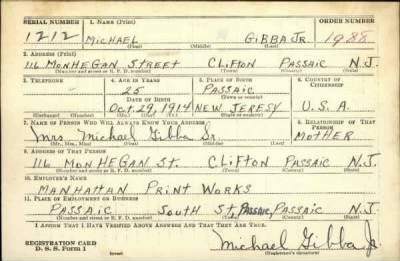 SERIAL NUMBER 1. NAME (Print) ORDER NUMBER
1212 MICHAEL GIBBA JR. 1988
(First) (Middle) (Last)
2. ADDRESS (Print)
116 MONHEGAN STREET CLIFTON PASSAIC N.J.
(Number and street or R. F. D. number) (Town) (County) (State)
3. TELEPHONE 4. AGE IN YEARS 5. PLACE OF BIRTH 6. COUNTRY OF CITIZENSHIP
25 PASSAIC
DATE OF BIRTH (Town or county)
OCT. 29, 1914 NEW JERESY U.S.A.
(Exchange) (Number) (Mo.) (Day) (Yr.) (State or country)
7. NAME OF PERSON WHO WILL ALWAYS KNOW YOUR ADDRESS 8. RELATIONSHIP OF THAT PERSON
Mrs Michael Gibba Sr. MOTHER
(Mr., Mrs., Miss) (First) (Middle) (Last)
9. ADDRESS OF THAT PERSON
116 MONHEGAN ST. CLIFTON PASSAIC N.J.
(Number and street or R. F. D. number) (Town) (County) (State)
10. EMPLOYER'S NAME
MANHATTAN PRINT WORKS
11. PLACE OF EMPLOYMENT OR BUSINESS
PASSAIC SOUTH ST, PASSAIC, PASSAIC N.J.
(Number and street or R. F. D. number) (Town) (County) (State)
I AFFIRM THAT I HAVE VERIFIED ABOVE ANSWERS AND THAT THEY ARE TRUE.
REGISTRATION CARD
D. S. S. Form 1
Michael Gibba Jr.
(Registrant's signature)